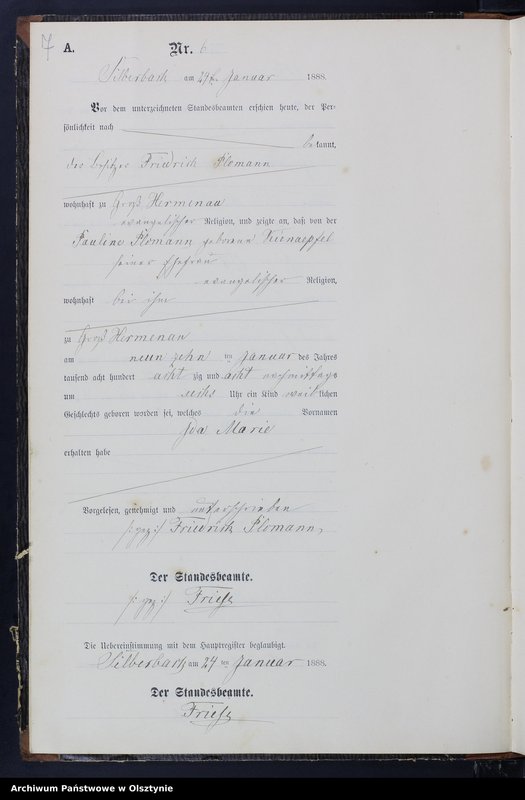 7
A. Nr. 6
Silberbach am 24ten Januar 1888.
Vor dem unterzeichneten Standesbeamten erschien heute, der Per-
sönlichkeit nach
bekannt,
der Besitzer Friedrich Plomann
wohnhaft zu Groß Hermenau
evangelischer Religion, und zeigte an, daß von der
Pauline Plomann geborenen
seiner Ehefrau
evangelischer Religion,
wohnhaft bei ihm
zu Groß Hermenau
am neun zehn ten Januar des Jahres
tausend acht hundert acht zig und acht nachmittags
um sechs Uhr ein Kind weiblichen
Geschlechts geboren worden sei, welches die Vornamen
Ida Marie
erhalten habe
Vorgelesen, genehmigt und unterschrieben
/: gez :/ Friedrich Plomann,
Der Standesbeamte.
/: gez :/ Friese
Die Uebereinstimmung mit dem Hauptregister beglaubigt.
Silberbach am 24 ten Januar 1888.
Der Standesbeamte.
Friese
Archiwum Państwowe w Olsztynie